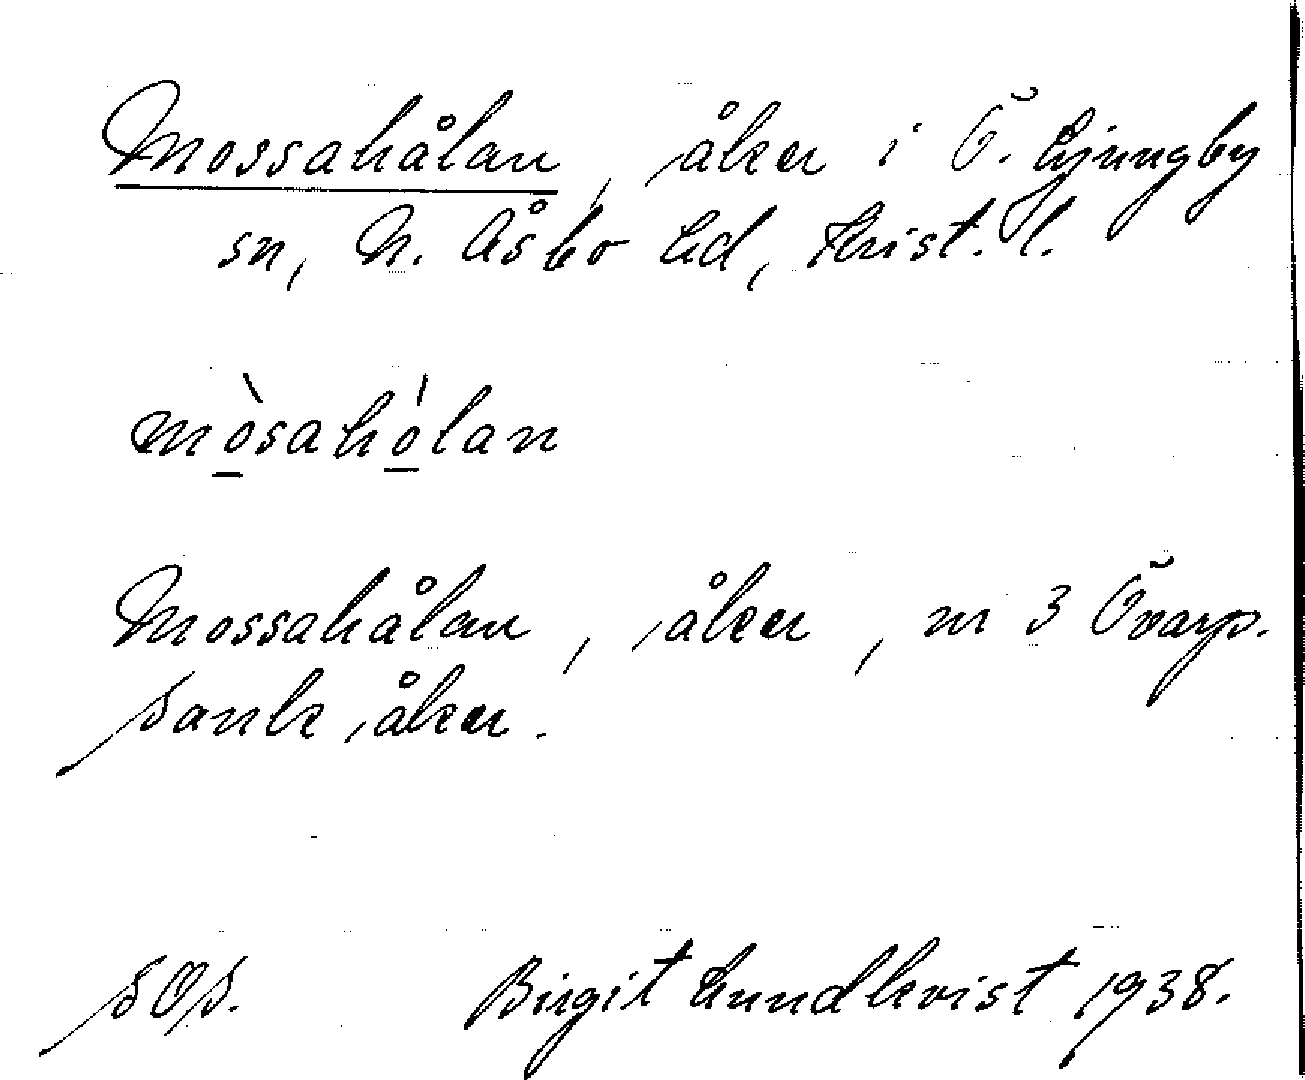 Mossahålan, åker i Ö. Ljungby
sn, N. Åsbo hd, Krist. l.
mòsahólan
Mossahålan, åker, nr 3 Övarp.
Sank åker.
SOJ.
Birgit Lundkvist 1938.